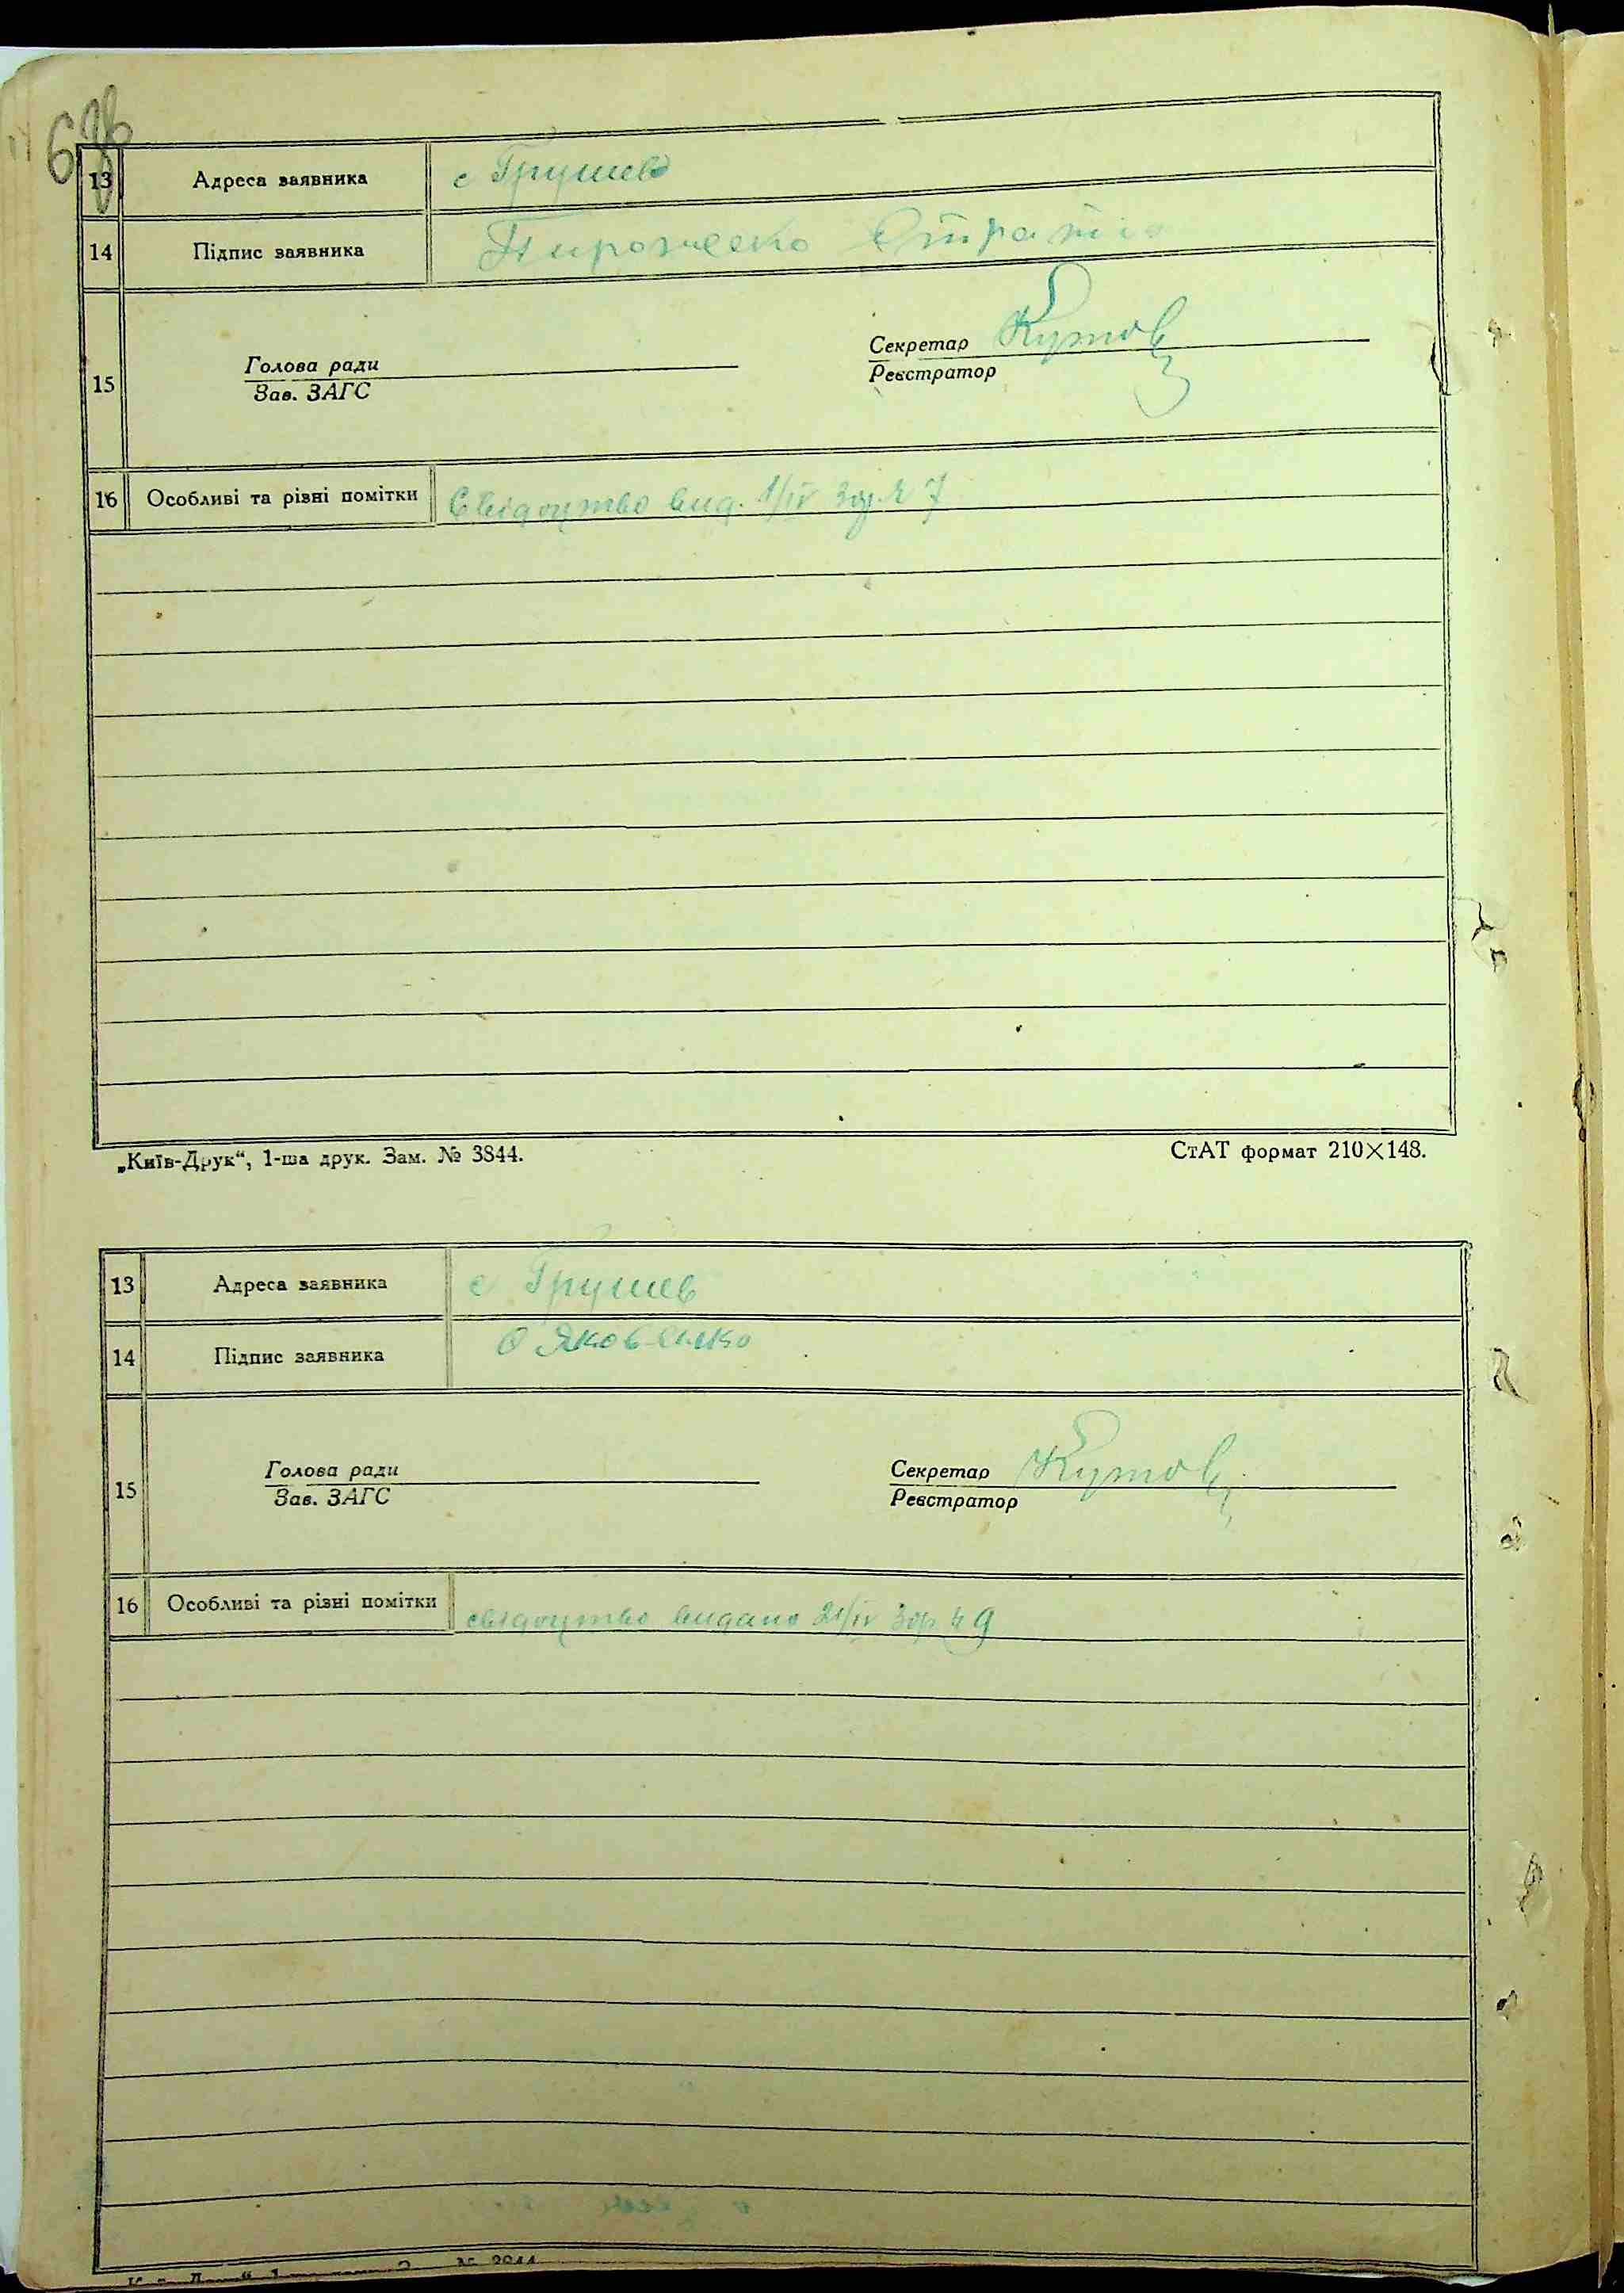 13 Адреса заявника с Грушев
14 Підпис заявника
15 Голова ради
Зав. ЗАГС
Секретар Кутов
Реєстратор
16 Особливі та різні помітки Свідоцтво вид. 1/IV 7
„Київ-Друк“, 1-ша друк. Зам. № 3844.
СтАТ формат 210×148.
13 Адреса заявника с Грушев
14 Підпис заявника О Яковенко
15 Голова ради
Зав. ЗАГС
Секретар Кутов
Реєстратор
16 Особливі та різні помітки свідоцтво видано 21/IV 9